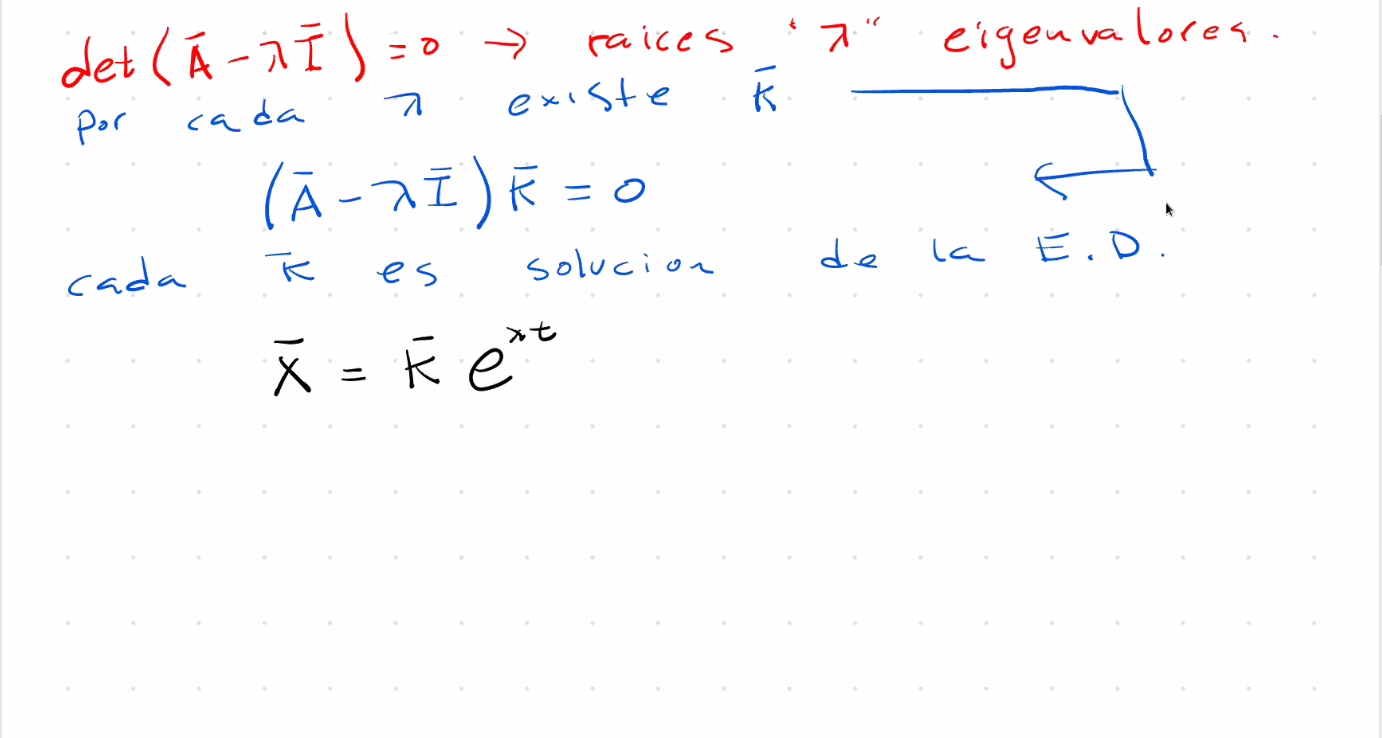 det(Ā - λĪ) = 0 → raices "λ" eigenvalores.
por cada λ existe K̄
(Ā - λĪ) K̄ = 0
cada K̄ es solucion de la E.D.
X̄ = K̄ e^λt